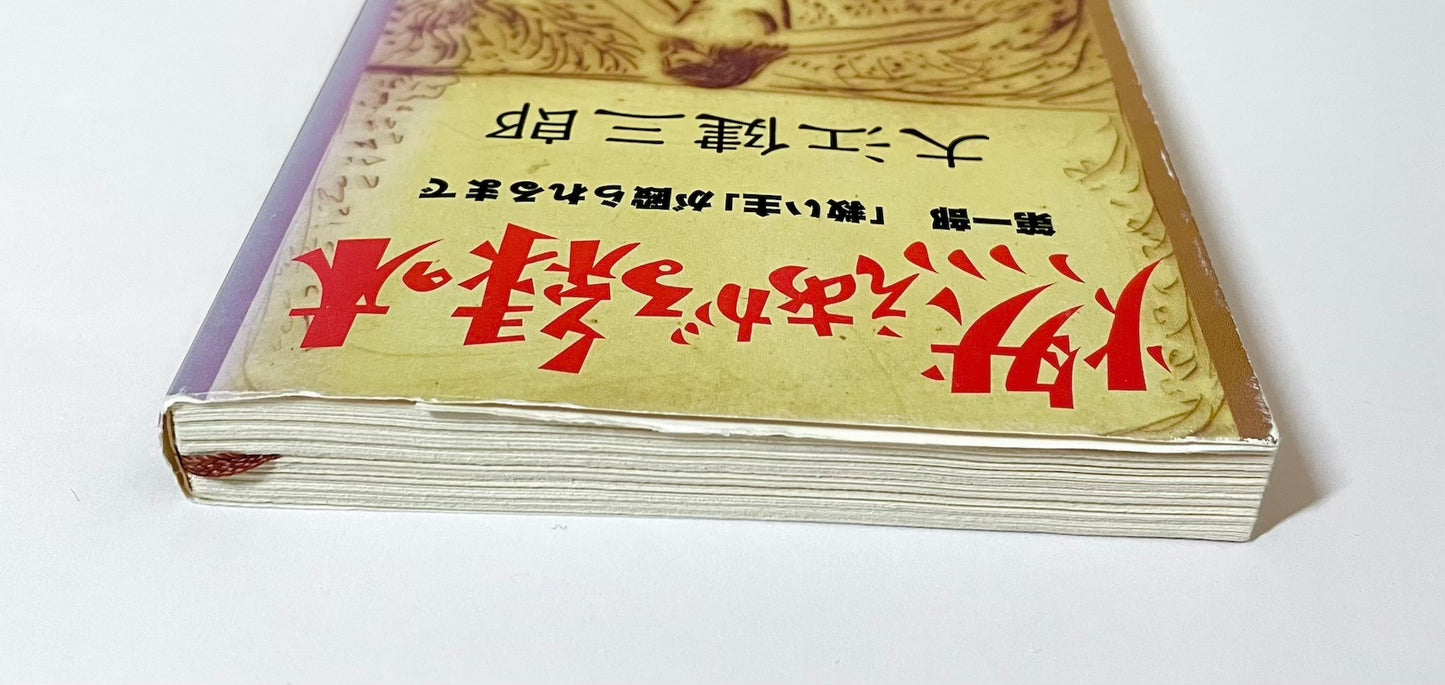 燃えあがる緑の木
第一部　「救い主」が殴られるまで
大江健三郎